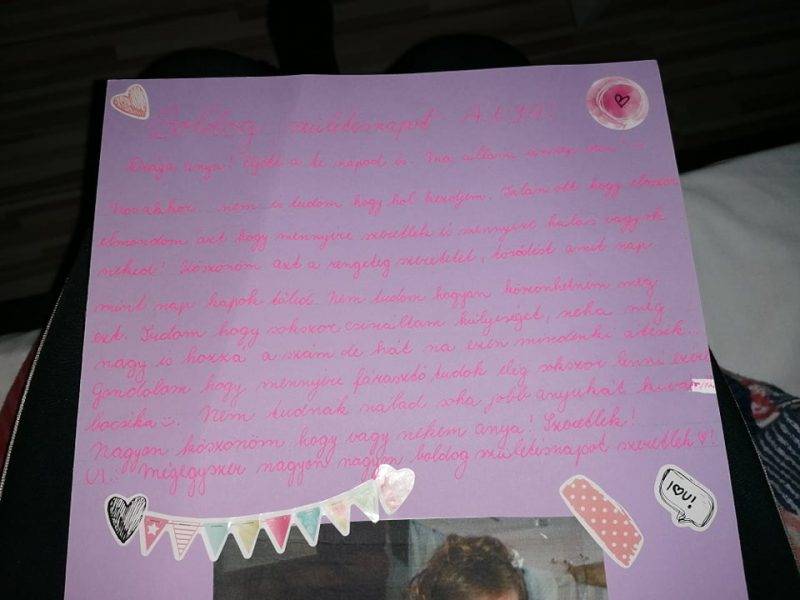 Boldog születésnapot ANYA!
Drága anya! Eljött a te napod is. Ma
nem is tudom hogy hol kezdjem. Talán ott hogy először
elmondom azt hogy mennyire szeretlek és mennyire hálás vagyok
neked! Köszönöm azt a rengeteg szeretetet, törődést amit nap
mint nap kapok tőled. Nem tudom hogyan köszönhetném meg
ezt. Tudom hogy sokszor csináltam hülyeséget, néha még
nagy is hozzá a szám de hát na ezen mindenki átesik...
Gondolom hogy mennyire fárasztó tudok elég sokszor lenni ezér
bocsika :). Nem tudnék nálad soha jobb anyukát
Nagyon köszönöm hogy vagy nekem anya! Szeretlek!
Ui.: Mégegyszer nagyon nagyon boldog születésnapot szeretlek ♡!
I ♥ U!